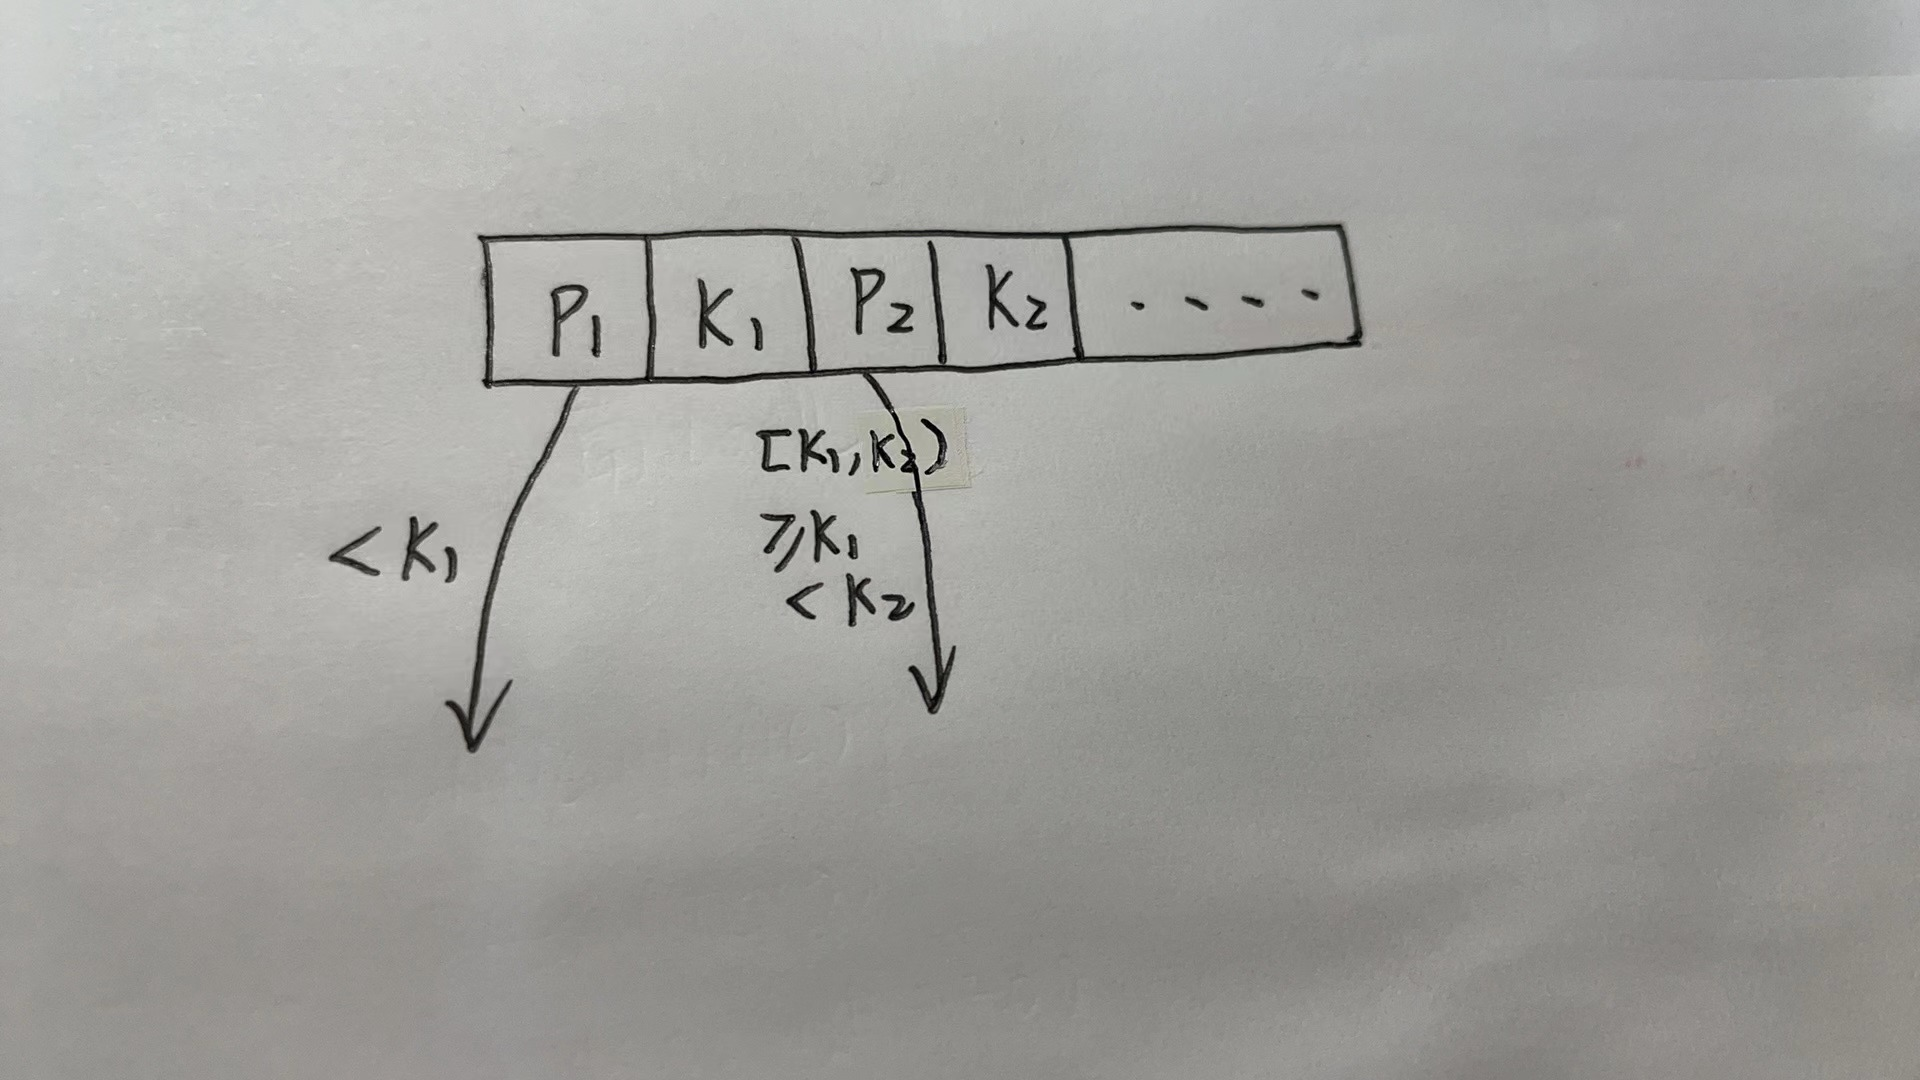 P₁ K₁ P₂ K₂ ....
[K₁,K₂)
<K₁
≥K₁
<K₂